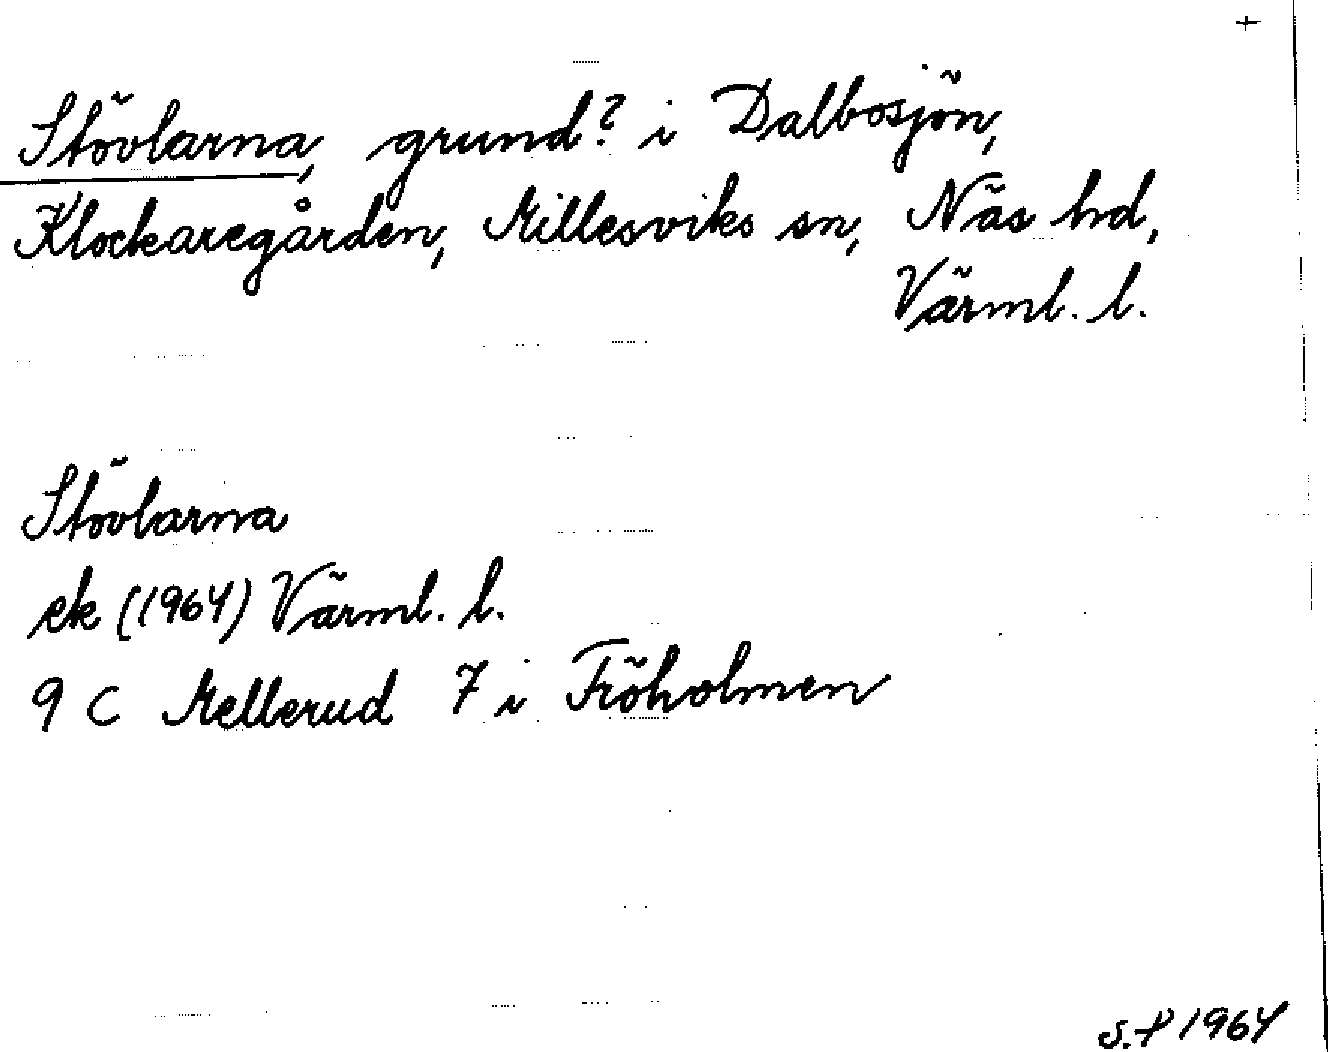 +
Stövlarna, grund? i Dalbosjön,
Klockaregården, Millesviks sn, Näs hd,
Värml. l.
Stövlarna
ek (1964) Värml. l.
9 C Mellerud 7 i Fröholmen
S.P 1964